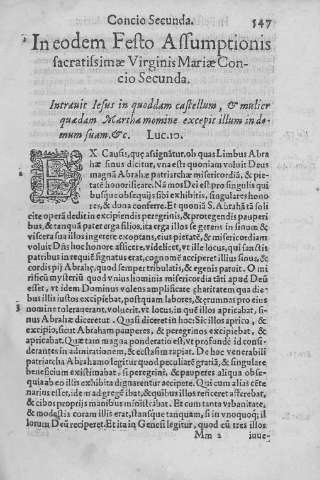 Concio Secunda. 547
In eodem Festo Assumptionis
sacratissimæ Virginis Mariæ Con-
cio Secunda.
Intrauit Iesus in quoddam castellum, & mulier
quædam Martha nomine excepit illum in do-
mum suam. &c. Luc. 10.
EX Causis, quę assignātur, ob quas Limbus Abra
hæ sinus dicitur, vna est quoniam voluit Deus
magnā Abrahæ patriarchæ misericordiā, & pie-
tatē honorificare. Nā mos Dei est pro singulis qui
busque obsequijs sibi exhibitis, singulares hono
res, & dona conferre. Et quoniā S. Abrahā tā soli
cite operā dedit in excipiendis peregrinis, & protegendis pauperi
bus, & tanquā pater erga filios, ita erga illos se gerens in sinum &
viscera sua illos ingerere exoptans, eius pietatē, & misericordiam
voluit Dñs hoc honore afficere, videlicet, vt ille locus, qui sanctis
patribus in requiē signatus erat, cognomē acciperet illius sinus, &
cordis pij Abrahę, quod semper tribulatis, & egenis patuit. O mi
rificū mysteriū quod vnius hominis misericordia tāti apud Deū
esset, vt idem Dominus volens amplificare charitatem qua die
bus illis iustos excipiebat, postquam labores, & ęrumnas pro eius
nomine tolerauerant, voluerit, vt locus, in quē illos apricabat, si-
nus Abrahæ diceretur. Quasi diceret in hoc: Sic illos aprico, &
excipio, sicut Abraham pauperes, & peregrinos excipiebat, &
apricabat. Quæ tam magna ponderatio est, vt profundè id consi-
derantes in admirationem, & ecstasim rapiat. De hoc venerabili
patriarcha Abrahamo legitur quod peculiarē gratiā, & singulare
beneficium existimabat, si peregrini, & pauperes aliqua obse-
quia ab eo illis exhibita dignarentur accipere. Qui cum alias cēte
narius esset, ide mad gregē ibat, & quibus illos reficeret afferebat,
& cibos proprijs manibus ministrabat. Et cum tanta vrbanitate,
& modestia coram illis erat, stansque tanquam, si in vnoquoq; il
lorum Deū reciperet. Et ita in Genesi legitur, quod cū tres illos
Mm 2 iuue-